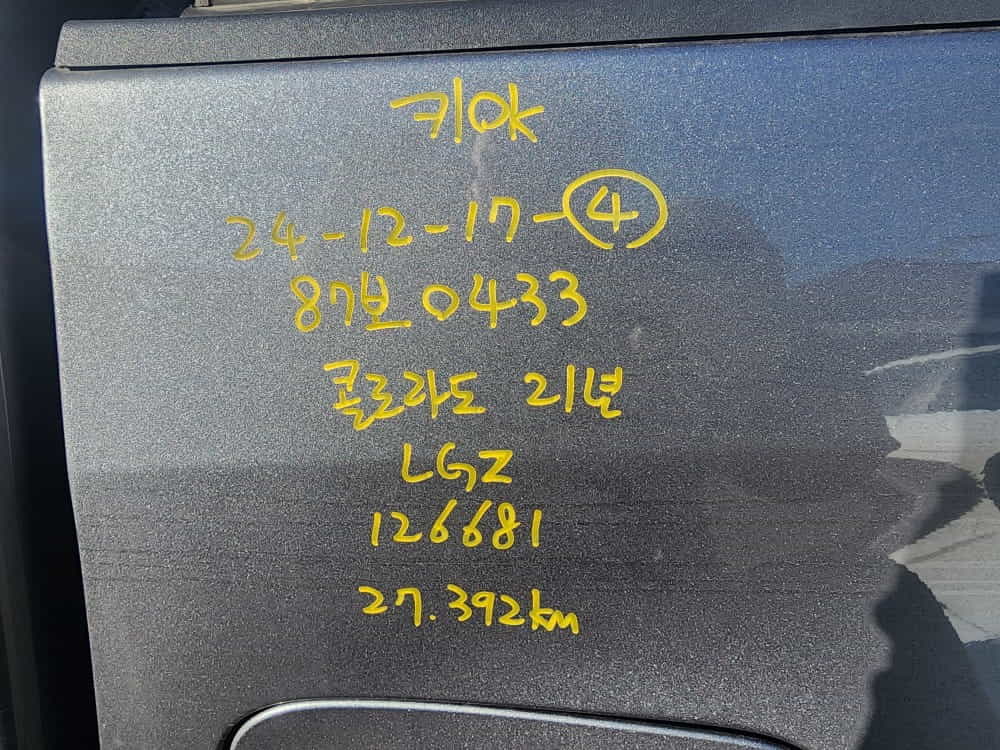 키OK
24-12-17-④
87보0433
콜로라도 21년
LGZ
126681
27.392km